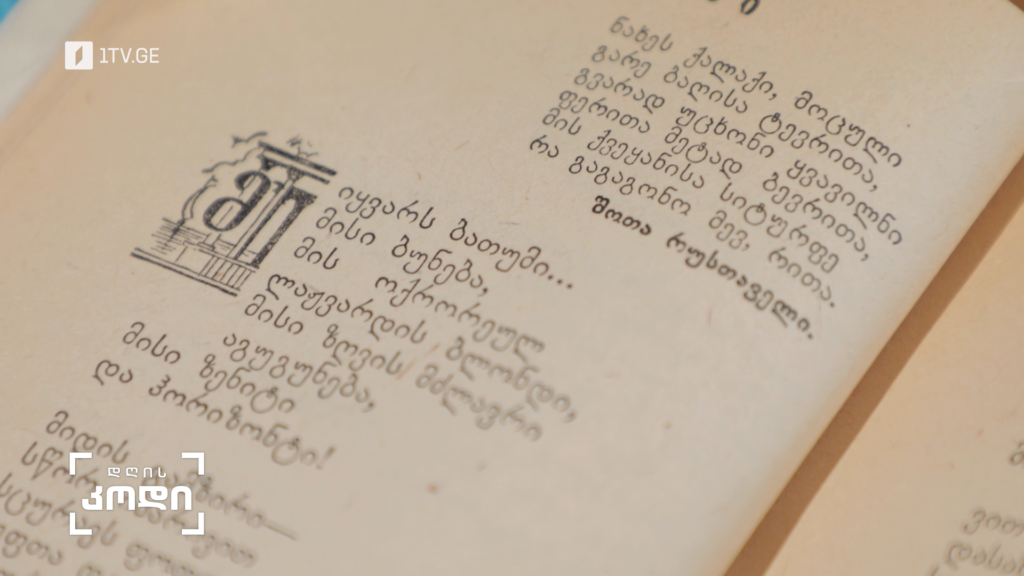 1TV.GE
ნახეს ქალაქი, მოცული
გარე ბაღისა ტევრითა,
გვარად უცხონი ყვავილნი
ფერითა მეტად ბევრითა,
მის ქვეყანისა სიტურფე
რა გაგაგონო მევ, რითა.
შოთა რუსთაველი.
მიყვარს ბათუმი...
მისი ბუნება,
მის ოქრორეულ
ლაჟვარდის ბლონდი,
მისი ზღვის მძლავრი
აგუგუნება,
მისი ზენიტი
და ჰორიზონტი!
მიდის
დღის
კოდი